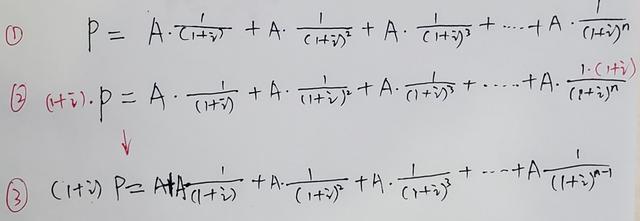 ① P = A·1/(1+i) + A·1/(1+i)² + A·1/(1+i)³ + ‥‥ + A·1/(1+i)ⁿ
② (1+i)·P = A·1/(1+i) + A·1/(1+i)² + A·1/(1+i)³ + ‥‥ + A·1·(1+i)/(1+i)ⁿ
↓
③ (1+i) P = A+A·1/(1+i) + A·1/(1+i)² + A·1/(1+i)³ + ‥‥ + A·1/(1+i)ⁿ⁻¹